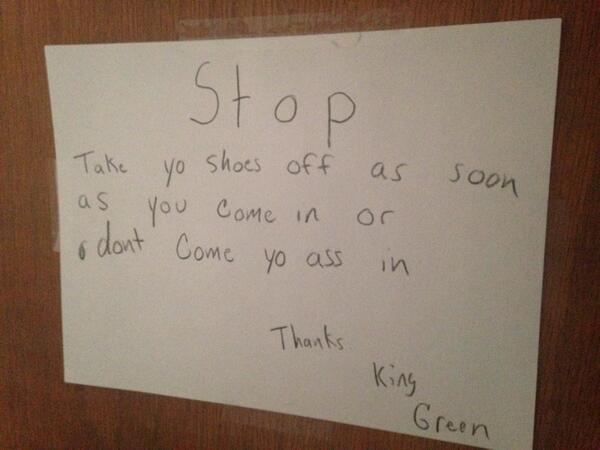 Stop
Take yo shoes off as soon
as you come in or
dont come yo ass in
Thanks
King
Green